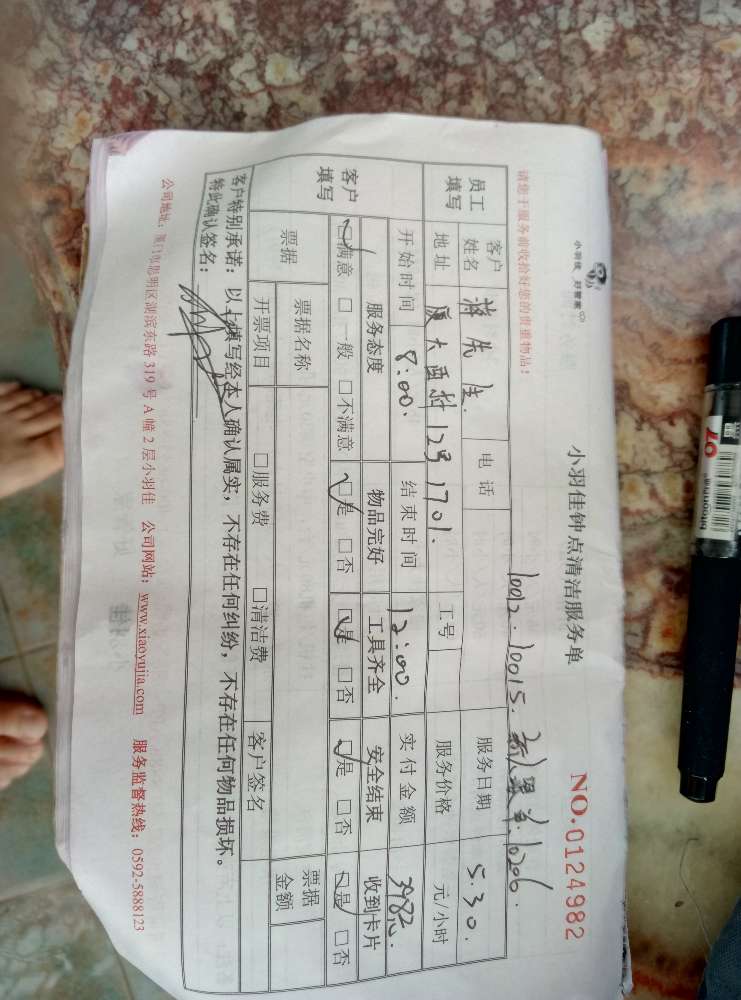 小羽佳 好管家
小羽佳钟点清洁服务单
NO.0124982
请您于服务前收拾好您的贵重物品！
10012.10015.新人跟单.10206.
员工填写 客户姓名 蒋先生. 电话 服务日期 5.30.
地址 厦大西村12号1701. 工号 服务价格 元/小时
开始时间 8:00. 结束时间 12:00. 实付金额
客户填写 服务态度 物品完好 工具齐全 安全结束 收到卡片
☑满意 □一般 □不满意 ☑是 □否 ☑是 □否 ☑是 □否 ☑是 □否
票据 票据名称 □服务费 □清洁费 客户签名 票据金额
开票项目
客户特别承诺：以上填写经本人确认属实，不存在任何纠纷，不存在任何物品损坏。
特此确认签名：
公司地址：厦门市思明区湖滨东路319号A幢2层小羽佳 公司网站：www.xiaoyujia.com 服务监督热线：0592-5888123